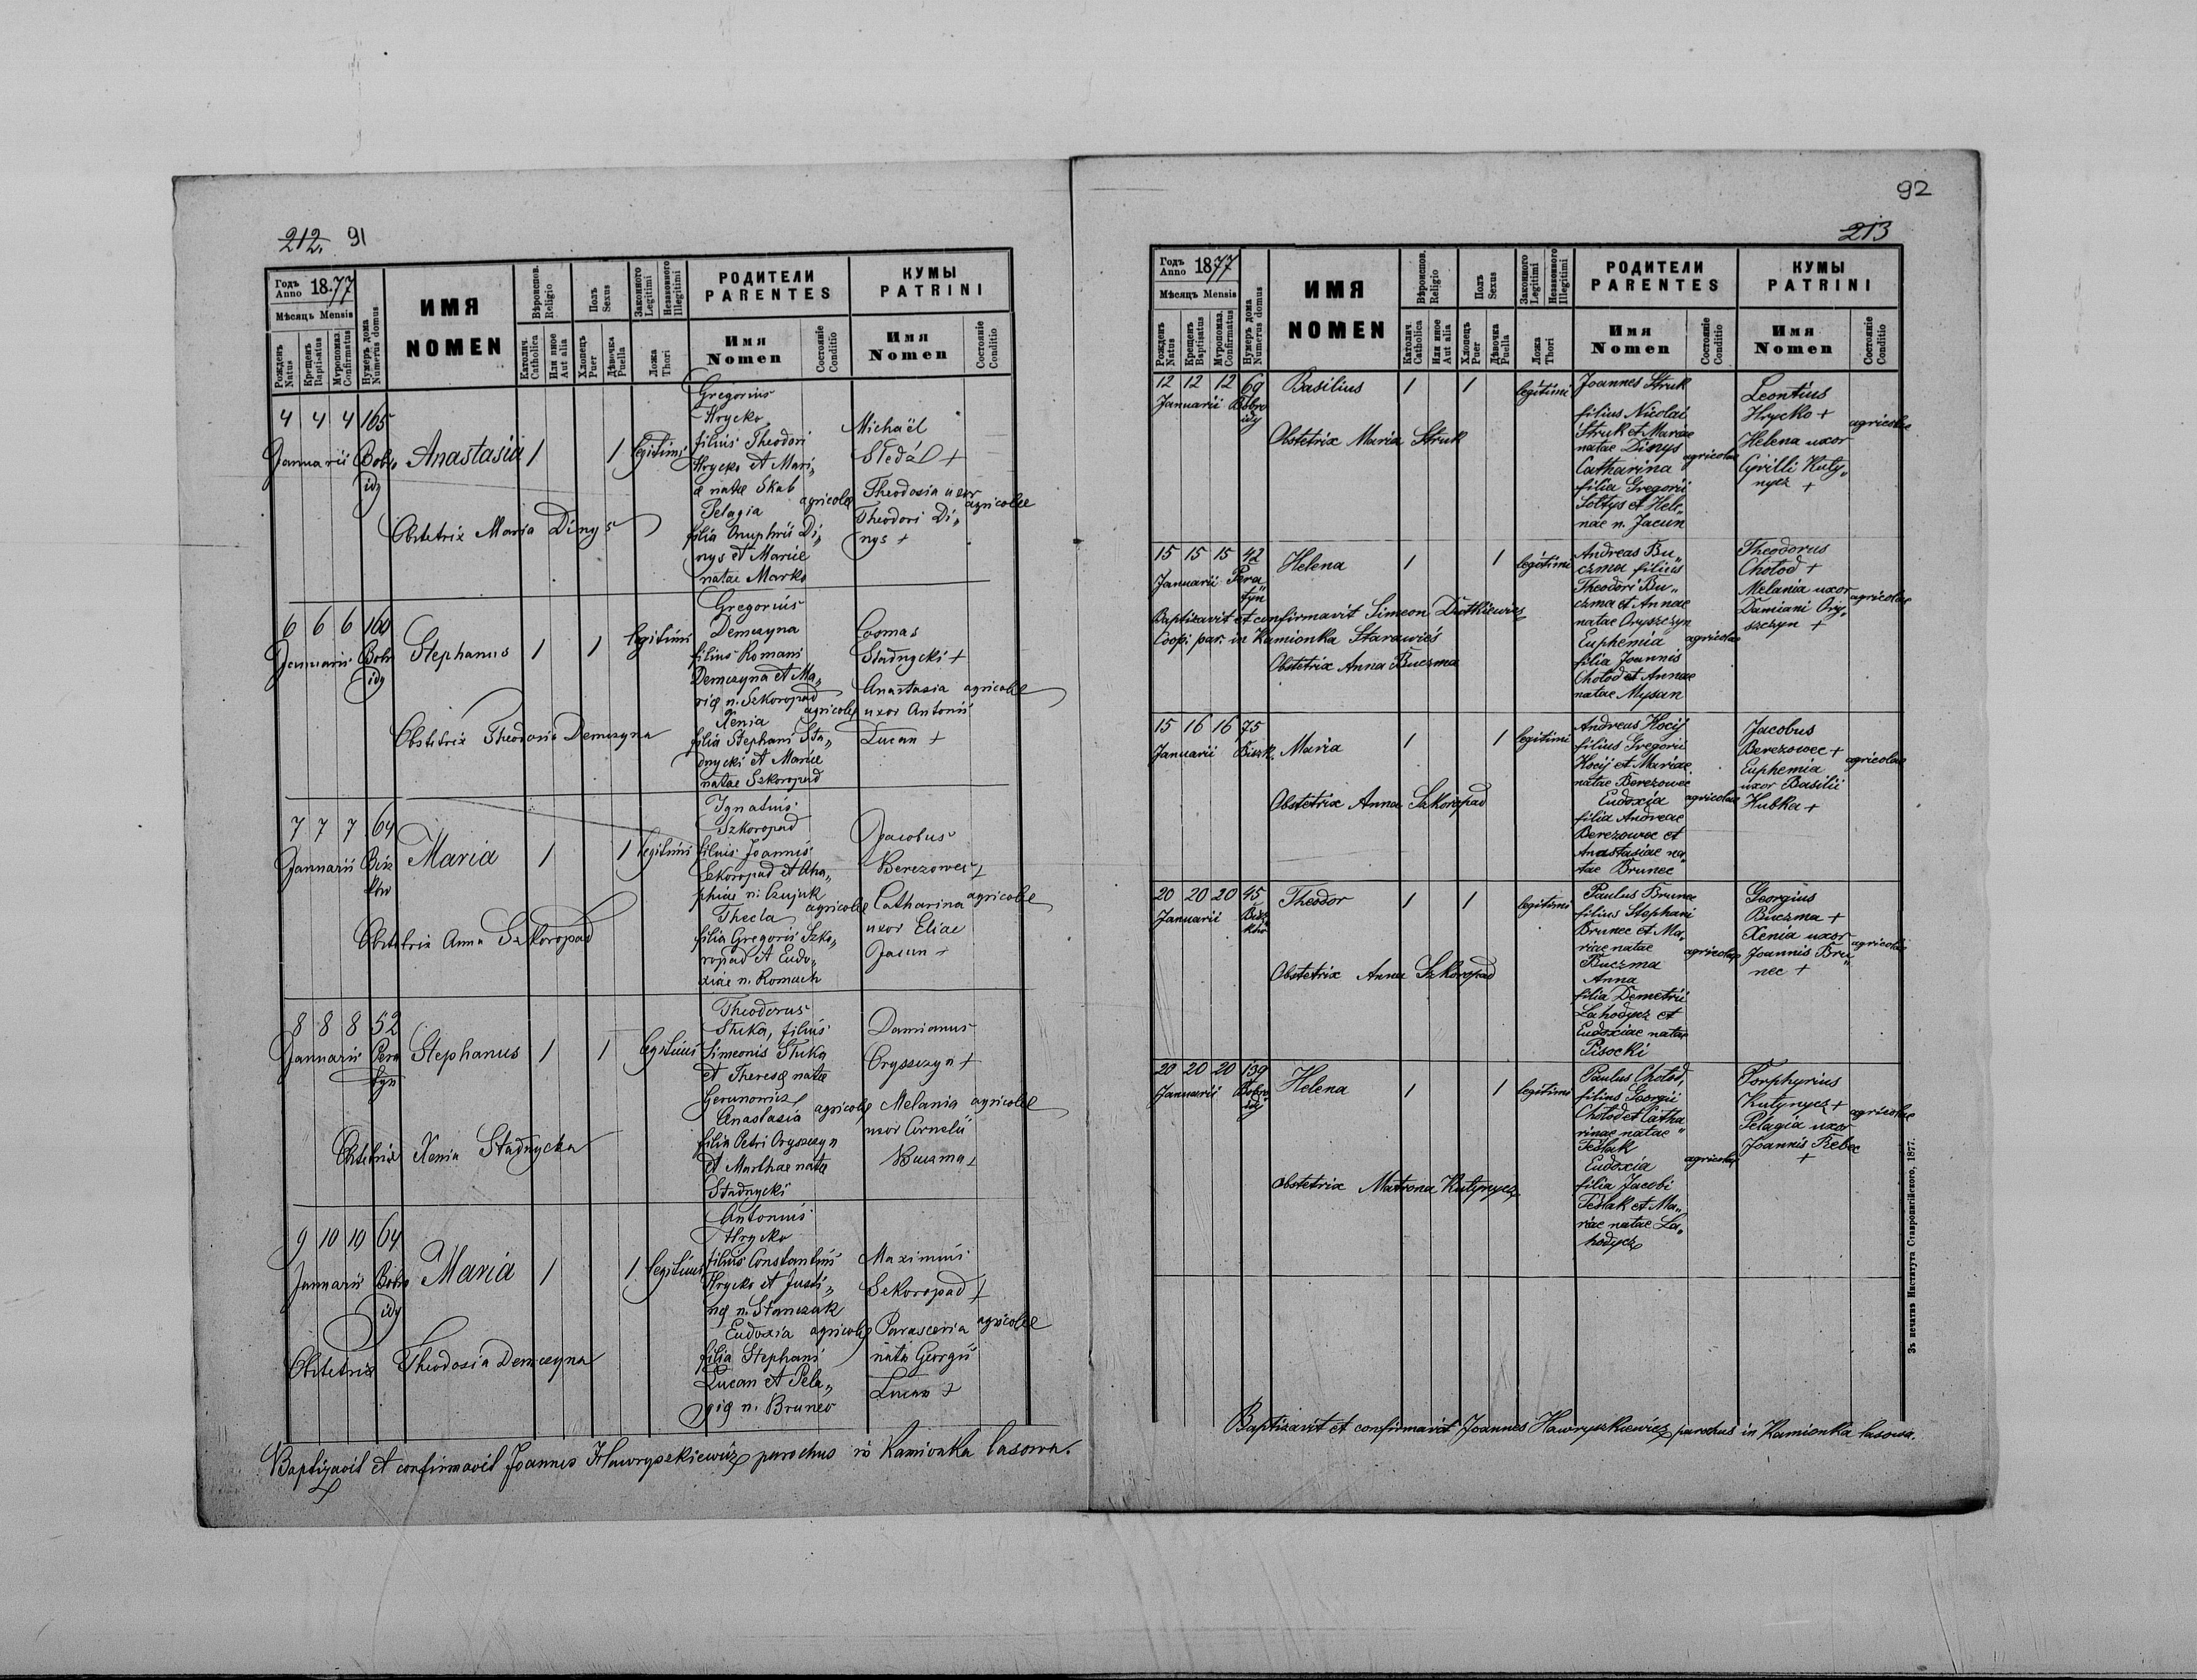 212. 91
Годъ
Anno 1877
Мѣсяцъ Mensis
Рожденъ
Natus
Крещенъ
Baptisatus
Муропомаз.
Confirmatus
Нумеръ дома
Numerus domus
ИМЯ
NOMEN
Вѣроисповѣд.
Religio
Католич.
Catholica
Или иное
Aut alia
Полъ
Sexus
Хлопецъ
Puer
Дѣвочка
Puella
Законного
Legitimi
Незаконного
Illegitimi
Ложа
Thori
РОДИТЕЛИ
PARENTES
Имя
Nomen
Состояніе
Conditio
КУМЫ
PATRINI
Имя
Nomen
Состояніе
Conditio
4 4 4 165
Januarii Bobro
idy
Anastasia 1 1 legitimi
Obstetrix Maria Dinys
Gregorius
Hrycko
filius Theodori
Hrycko et Mari„
æ natæ Skab
Pelagia agricolæ
filia Onuphrii Di„
nys et Mariæ
natae Marko
Michaël
+
Theodosia uxor
Theodori Di„ agricolæ
nys +
6 6 6 160
Januarii Bobro
idy
Stephanus 1 1 legitimi
Obstetrix Theodosia Demczyna
Gregorius
Demczyna
filius Romani
Demczyna et Ma„
riæ n. Szkoropad
Xenia agricolæ
filia Stephani Sta„
dnycki et Mariæ
natae Szkoropad
Cosmas
Stadnycki +
Anastasia agricolæ
uxor Antonii
Lucan +
7 7 7 64
Januarii Bisz
ków
Maria 1 1 legitimi
Obstetrix Anna Szkoropad
Ignatius
Szkoropad
filius Joannis
Szkoropad et Aha„
phiae n. Czujak
Thecla agricolæ
filia Gregorii Szko„
ropad et Eudo„
xiae n. Romach
Jacobus
Berezowec +
Catharina agricolæ
uxor Eliae
Jacun +
8 8 8 52
Januarii Pera
tyn
Stephanus 1 1 legitimi
Obstetrix Xenia Stadnycka
Theodorus
Stuka, filius
Simeonis Stuka
et Theresæ natæ
Gerunowicz
Anastasia agricolæ
filia Petri Oryszczyn
et Marthae natæ
Stadnycki
Damianus
Oryszczyn +
Melania agricolæ
uxor Cornelii
Buczma +
9 10 10 64
Januarii Bobro
idy
Maria 1 1 legitimi
Obstetrix Theodosia Demczyna
Antonius
Hrycko
filius Constantini
Hrycko et Justi„
næ n. Stanczak
Eudoxia agricolæ
filia Stephani
Lucan et Pela„
giæ n. Brunec
Maximus
Szkoropad +
Parascevia agricolæ
nata Georgii
Lucan +
Baptizavit et confirmavit Joannes Hawryszkiewicz parochus in Kamionka lasowa.
92
213
Годъ
Anno 1877
Мѣсяцъ Mensis
Рожденъ
Natus
Крещенъ
Baptisatus
Муропомаз.
Confirmatus
Нумеръ дома
Numerus domus
ИМЯ
NOMEN
Вѣроисповѣд.
Religio
Католич.
Catholica
Или иное
Aut alia
Полъ
Sexus
Хлопецъ
Puer
Дѣвочка
Puella
Законного
Legitimi
Незаконного
Illegitimi
Ложа
Thori
РОДИТЕЛИ
PARENTES
Имя
Nomen
Состояніе
Conditio
КУМЫ
PATRINI
Имя
Nomen
Состояніе
Conditio
12 12 12 69
Januarii Bobro
idy
Basilius 1 1 legitimi
Obstetrix Maria Struk
Joannes Struk
filius Nicolai
Struk et Mariae
natae Dinys
Catharina agricolae
filia Gregorii
Sołtys et Hele„
nae n. Jacun
Leontius
Hrycko +
Helena uxor agricolae
Cyrilli Kuty„
nycz +
15 15 15 42
Januarii Pera„
tyn
Helena 1 1 legitimi
Baptizavit et confirmavit Simeon Dutkiewicz
Coop. par. in Kamionka Starawieś
Obstetrix Anna Buczma
Andreas Bu„
czma filius
Theodori Bu„
czma et Annae
natae Oryszczyn
Euphemia agricolae
filia Joannis
Chołod et Annae
natae Mysan
Theodorus
Chołod +
Melania uxor agricolae
Damiani Ory„
szczyn +
15 16 16 75
Januarii Biszk.
Maria 1 1 legitimi
Obstetrix Anna Szkoropad
Andreas Kocij
filius Gregorii
Kocij et Mariae
natae Berezowec
Eudoxia agricolae
filia Andreae
Berezowec et
Anastasiae na„
tae Brunec
Jacobus
Berezowec + agricolae
Euphemia
uxor Basilii
Hubka +
20 20 20 45
Januarii Bisz
ków
Theodor 1 1 legitimi
Obstetrix Anna Szkoropad
Paulus Brunec
filius Stephani
Brunec et Ma„
riae natae agricolae
Buczma
Anna
filia Demetrii
Łahodycz et
Eudoxiae natae
Pisocki
Georgius
Buczma +
Xenia uxor agricolae
Joannis Bru„
nec +
20 20 20 139
Januarii Bobro
idy
Helena 1 1 legitimi
Obstetrix Matrona Kutynycz
Paulus Chołod,
filius Georgii
Chołod et Catha„
rinae natae
Teślak
Eudoxia agricolae
filia Jacobi
Teślak et Ma„
riae natae Ła„
hodycz
Porphyrius
Kutynycz + agricolae
Pelagia uxor
Joannis Bebec
+
Baptizavit et confirmavit Joannes Hawryszkiewicz parochus in Kamionka lasowa.
Зъ печатнѣ Института Ставропигійского, 1877.